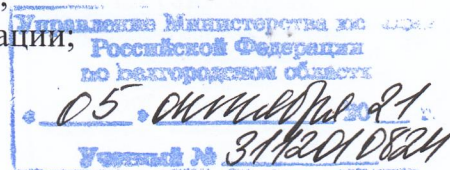 ,
Управление Министерства юс
ации;
Российской Федерации
по Белгородской области
« 05 » октября 2021 г.
Учетный № 3112010824